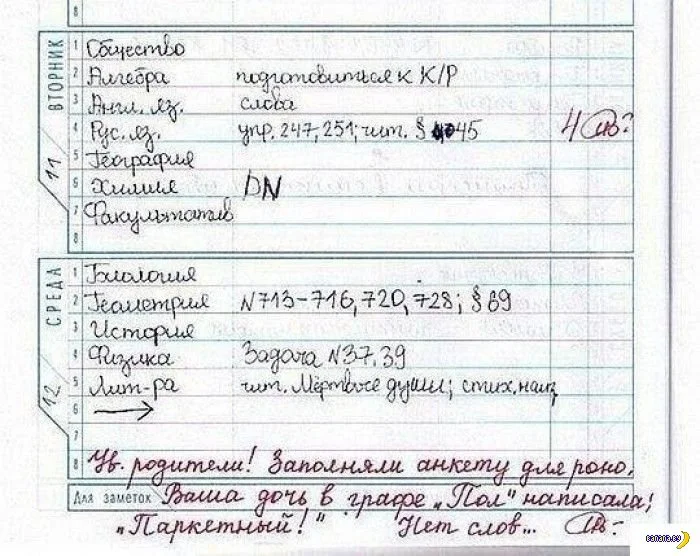 8
ВТОРНИК
11
1 Общество
2 Алгебра подготовиться к К/Р
3 Англ. яз. слова
4 Рус. яз. упр. 247, 251; чит. § 45 4
5 География
6 Химия
7 Факультатив
8
СРЕДА
12
1 Биология
2 Геометрия N713-716, 720, 728; § 69
3 История
4 Физика Задача N37, 39
5 Лит-ра чит. Мёртвые души; стих. наиз
6
7
8 Ув. родители! Заполняли анкету для роно.
Для заметок Ваша дочь в графе „Пол" написала:
„Паркетный!" Нет слов...
banana.es